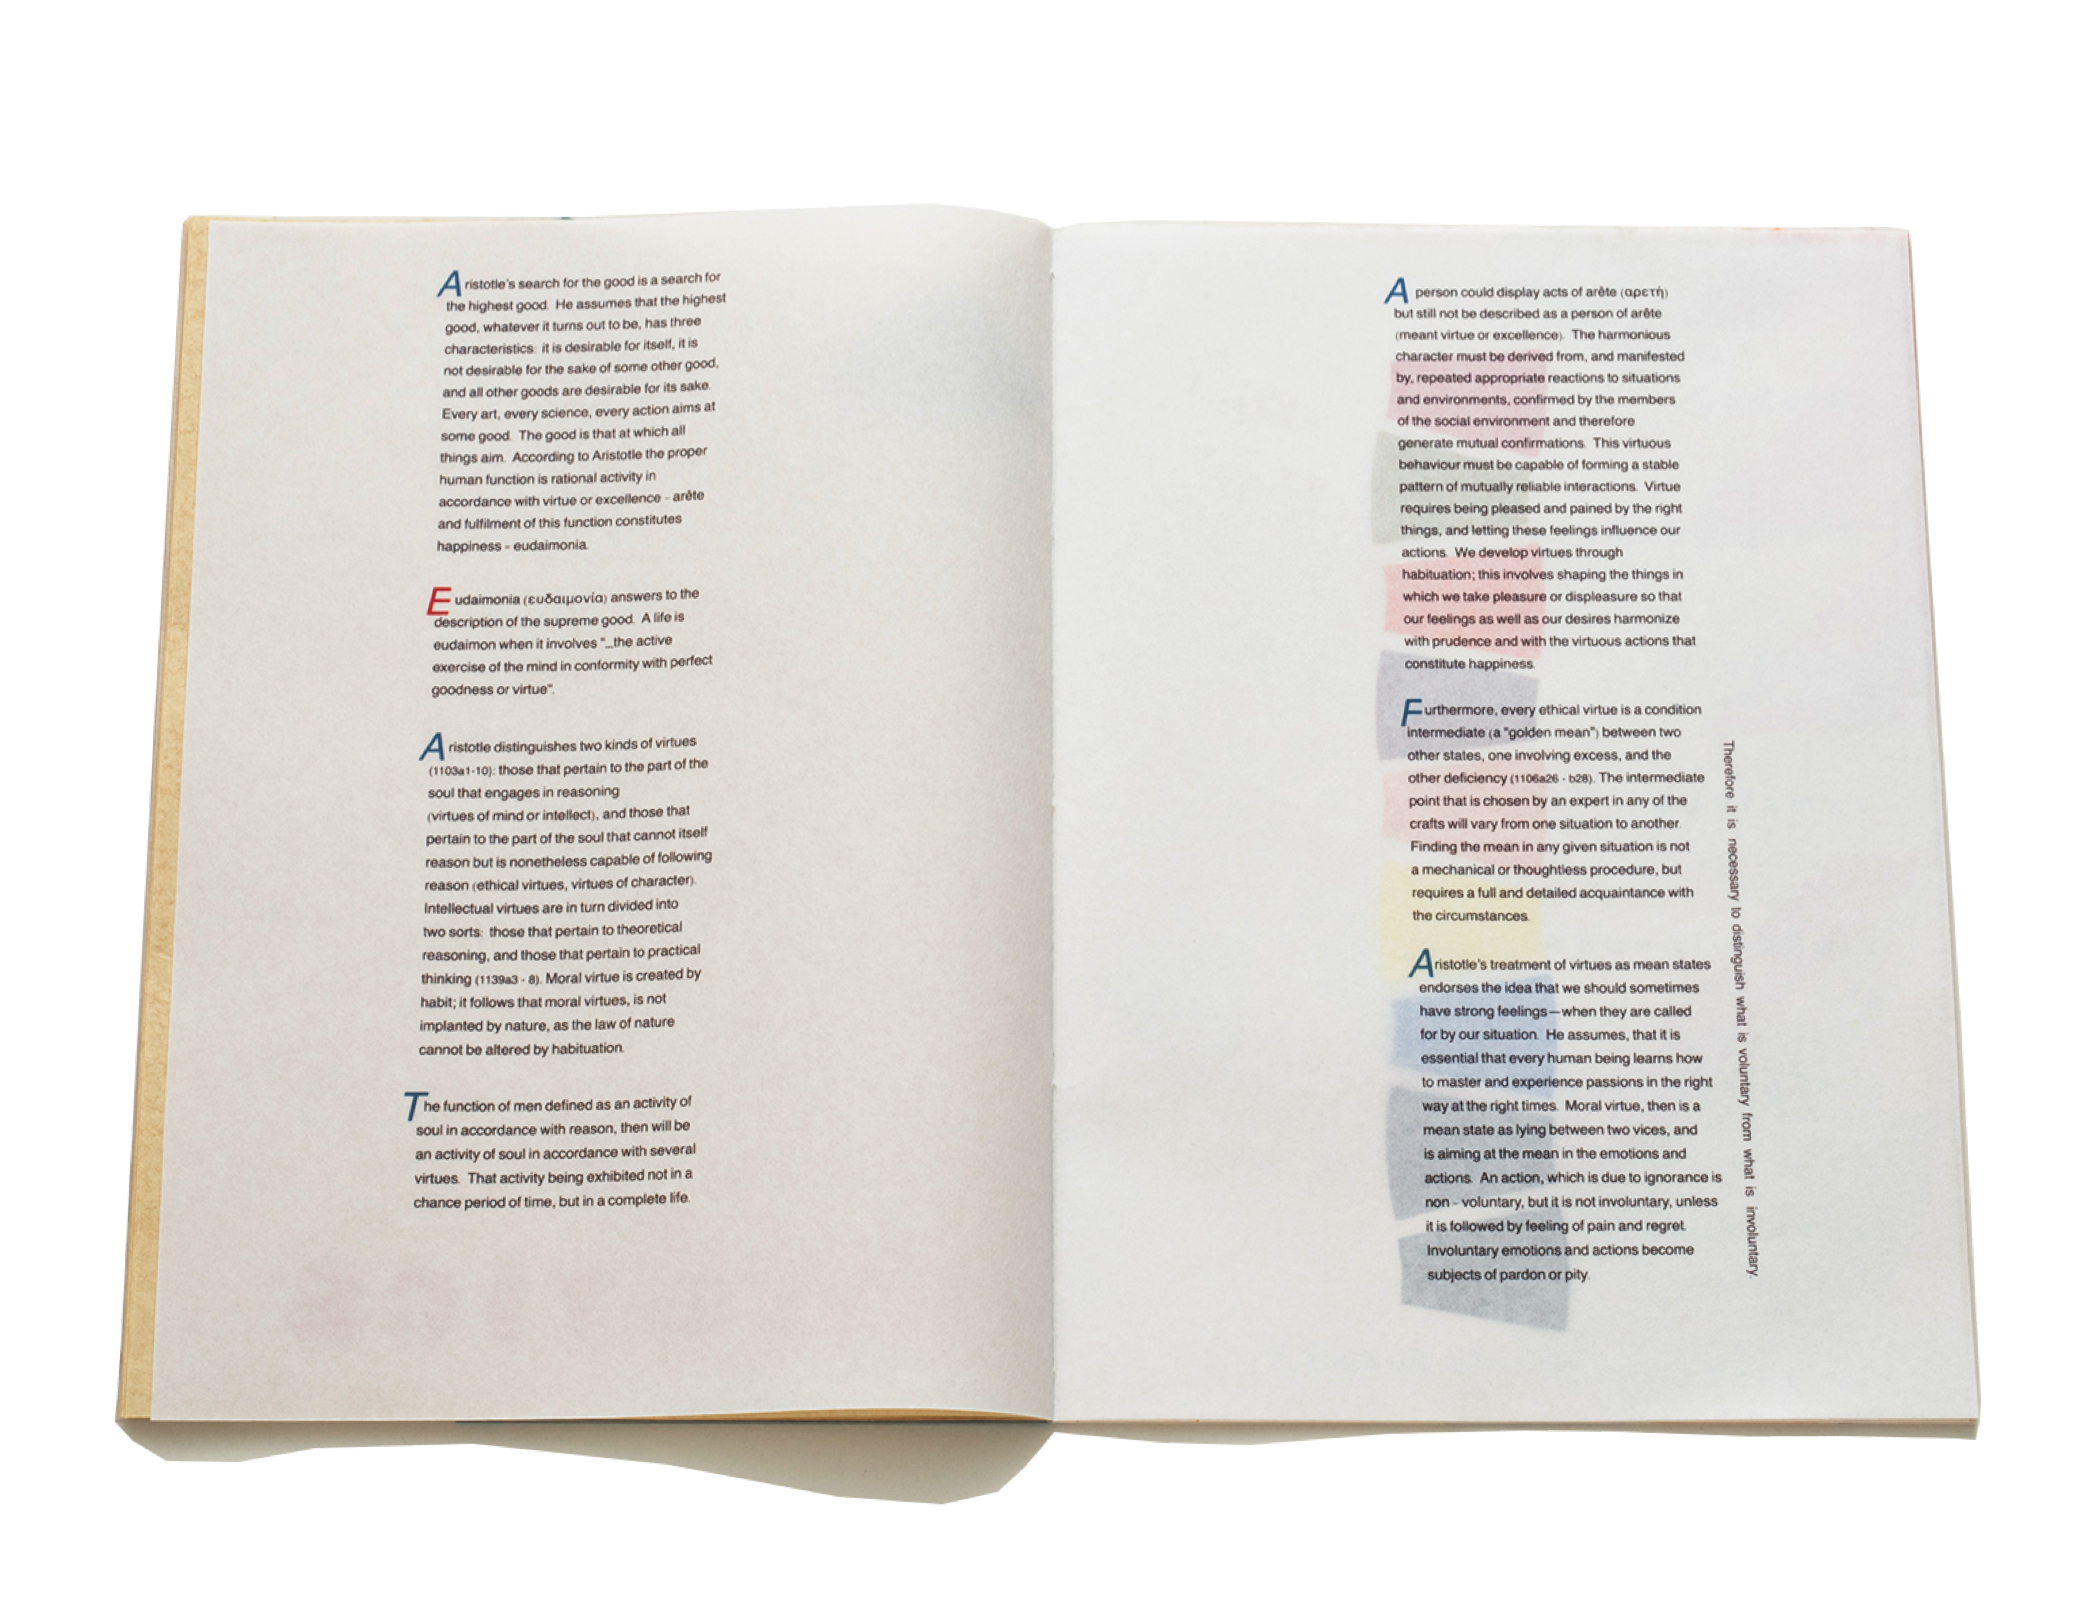 Aristotle's search for the good is a search for
the highest good. He assumes that the highest
good, whatever it turns out to be, has three
characteristics: it is desirable for itself, it is
not desirable for the sake of some other good,
and all other goods are desirable for its sake.
Every art, every science, every action aims at
some good. The good is that at which all
things aim. According to Aristotle the proper
human function is rational activity in
accordance with virtue or excellence - arête
and fulfilment of this function constitutes
happiness - eudaimonia.
Eudaimonia (ευδαιμονία) answers to the
description of the supreme good. A life is
eudaimon when it involves "...the active
exercise of the mind in conformity with perfect
goodness or virtue".
Aristotle distinguishes two kinds of virtues
(1103a1-10): those that pertain to the part of the
soul that engages in reasoning
(virtues of mind or intellect), and those that
pertain to the part of the soul that cannot itself
reason but is nonetheless capable of following
reason (ethical virtues, virtues of character).
Intellectual virtues are in turn divided into
two sorts: those that pertain to theoretical
reasoning, and those that pertain to practical
thinking (1139a3 - 8). Moral virtue is created by
habit; it follows that moral virtues, is not
implanted by nature, as the law of nature
cannot be altered by habituation.
The function of men defined as an activity of
soul in accordance with reason, then will be
an activity of soul in accordance with several
virtues. That activity being exhibited not in a
chance period of time, but in a complete life.
A person could display acts of arête (αρετή)
but still not be described as a person of arête
(meant virtue or excellence). The harmonious
character must be derived from, and manifested
by, repeated appropriate reactions to situations
and environments, confirmed by the members
of the social environment and therefore
generate mutual confirmations. This virtuous
behaviour must be capable of forming a stable
pattern of mutually reliable interactions. Virtue
requires being pleased and pained by the right
things, and letting these feelings influence our
actions. We develop virtues through
habituation; this involves shaping the things in
which we take pleasure or displeasure so that
our feelings as well as our desires harmonize
with prudence and with the virtuous actions that
constitute happiness.
Furthermore, every ethical virtue is a condition
intermediate (a "golden mean") between two
other states, one involving excess, and the
other deficiency (1106a26 - b28). The intermediate
point that is chosen by an expert in any of the
crafts will vary from one situation to another.
Finding the mean in any given situation is not
a mechanical or thoughtless procedure, but
requires a full and detailed acquaintance with
the circumstances.
Aristotle's treatment of virtues as mean states
endorses the idea that we should sometimes
have strong feelings—when they are called
for by our situation. He assumes, that it is
essential that every human being learns how
to master and experience passions in the right
way at the right times. Moral virtue, then is a
mean state as lying between two vices, and
is aiming at the mean in the emotions and
actions. An action, which is due to ignorance is
non - voluntary, but it is not involuntary, unless
it is followed by feeling of pain and regret.
Involuntary emotions and actions become
subjects of pardon or pity.
Therefore it is necessary to distinguish what is voluntary from what is involuntary.